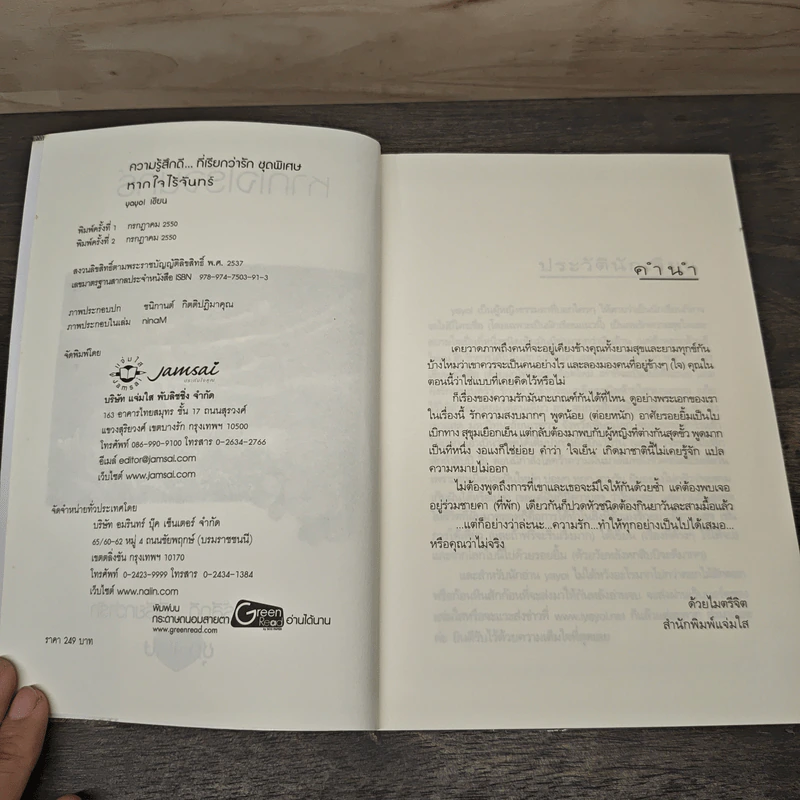 ความรู้สึกดี... ที่เรียกว่ารัก ชุดพิเศษ
หากใจไร้จันทร์
yayoi เขียน
พิมพ์ครั้งที่ 1 กรกฎาคม 2550
พิมพ์ครั้งที่ 2 กรกฎาคม 2550
สงวนลิขสิทธิ์ตามพระราชบัญญัติลิขสิทธิ์ พ.ศ. 2537
เลขมาตรฐานสากลประจำหนังสือ ISBN 978-974-7503-91-3
ภาพประกอบปก ชนิกานต์ กิตติปฏิมาคุณ
ภาพประกอบในเล่ม ninaM
จัดพิมพ์โดย
แจ่มใส
jamsai
jamsai
บริษัท แจ่มใส พับลิชชิ่ง จำกัด
163 อาคารไทยสมุทร ชั้น 17 ถนนสุรวงศ์
แขวงสุริยวงศ์ เขตบางรัก กรุงเทพฯ 10500
โทรศัพท์ 086-990-9100 โทรสาร 0-2634-2766
อีเมล์ editor@jamsai.com
เว็บไซต์ www.jamsai.com
จัดจำหน่ายทั่วประเทศโดย
บริษัท อมรินทร์ บุ๊ค เซ็นเตอร์ จำกัด
65/60-62 หมู่ 4 ถนนชัยพฤกษ์ (บรมราชชนนี)
เขตตลิ่งชัน กรุงเทพฯ 10170
โทรศัพท์ 0-2423-9999 โทรสาร 0-2434-1384
เว็บไซต์ www.naiin.com
พิมพ์บน
กระดาษถนอมสายตา
www.greenread.com
Green
Read
อ่านได้นาน
ราคา 249 บาท
คำนำ
เคยวาดภาพถึงคนที่จะอยู่เคียงข้างคุณทั้งยามสุขและยามทุกข์กัน
บ้างไหมว่าเขาควรจะเป็นคนอย่างไร และลองมองคนที่อยู่ข้างๆ (ใจ) คุณใน
ตอนนี้ว่าใช่แบบที่เคยคิดไว้หรือไม่
ก็เรื่องของความรักมันกะเกณฑ์กันได้ที่ไหน ดูอย่างพระเอกของเรา
ในเรื่องนี้ รักความสงบมากๆ พูดน้อย (ต่อยหนัก) อาศัยรอยยิ้มเป็นใบ
เบิกทาง สุขุมเยือกเย็น แต่กลับต้องมาพบกับผู้หญิงที่ต่างกันสุดขั้ว พูดมาก
เป็นที่หนึ่ง งอแงก็ใช่ย่อย คำว่า 'ใจเย็น' เกิดมาชาตินี้ไม่เคยรู้จัก แปล
ความหมายไม่ออก
ไม่ต้องพูดถึงการที่เขาและเธอจะมีใจให้กันด้วยซ้ำ แค่ต้องพบเจอ
อยู่ร่วมชายคา (ที่พัก) เดียวกันก็ปวดหัวชนิดต้องกินยาวันละสามมื้อแล้ว
...แต่ก็อย่างว่าล่ะนะ...ความรัก...ทำให้ทุกอย่างเป็นไปได้เสมอ...
หรือคุณว่าไม่จริง
ด้วยไมตรีจิต
สำนักพิมพ์แจ่มใส